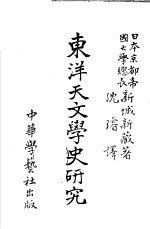 日本京都帝
國大學總長新城新藏著
沈璿譯
東洋天文學史研究
中華學藝社出版